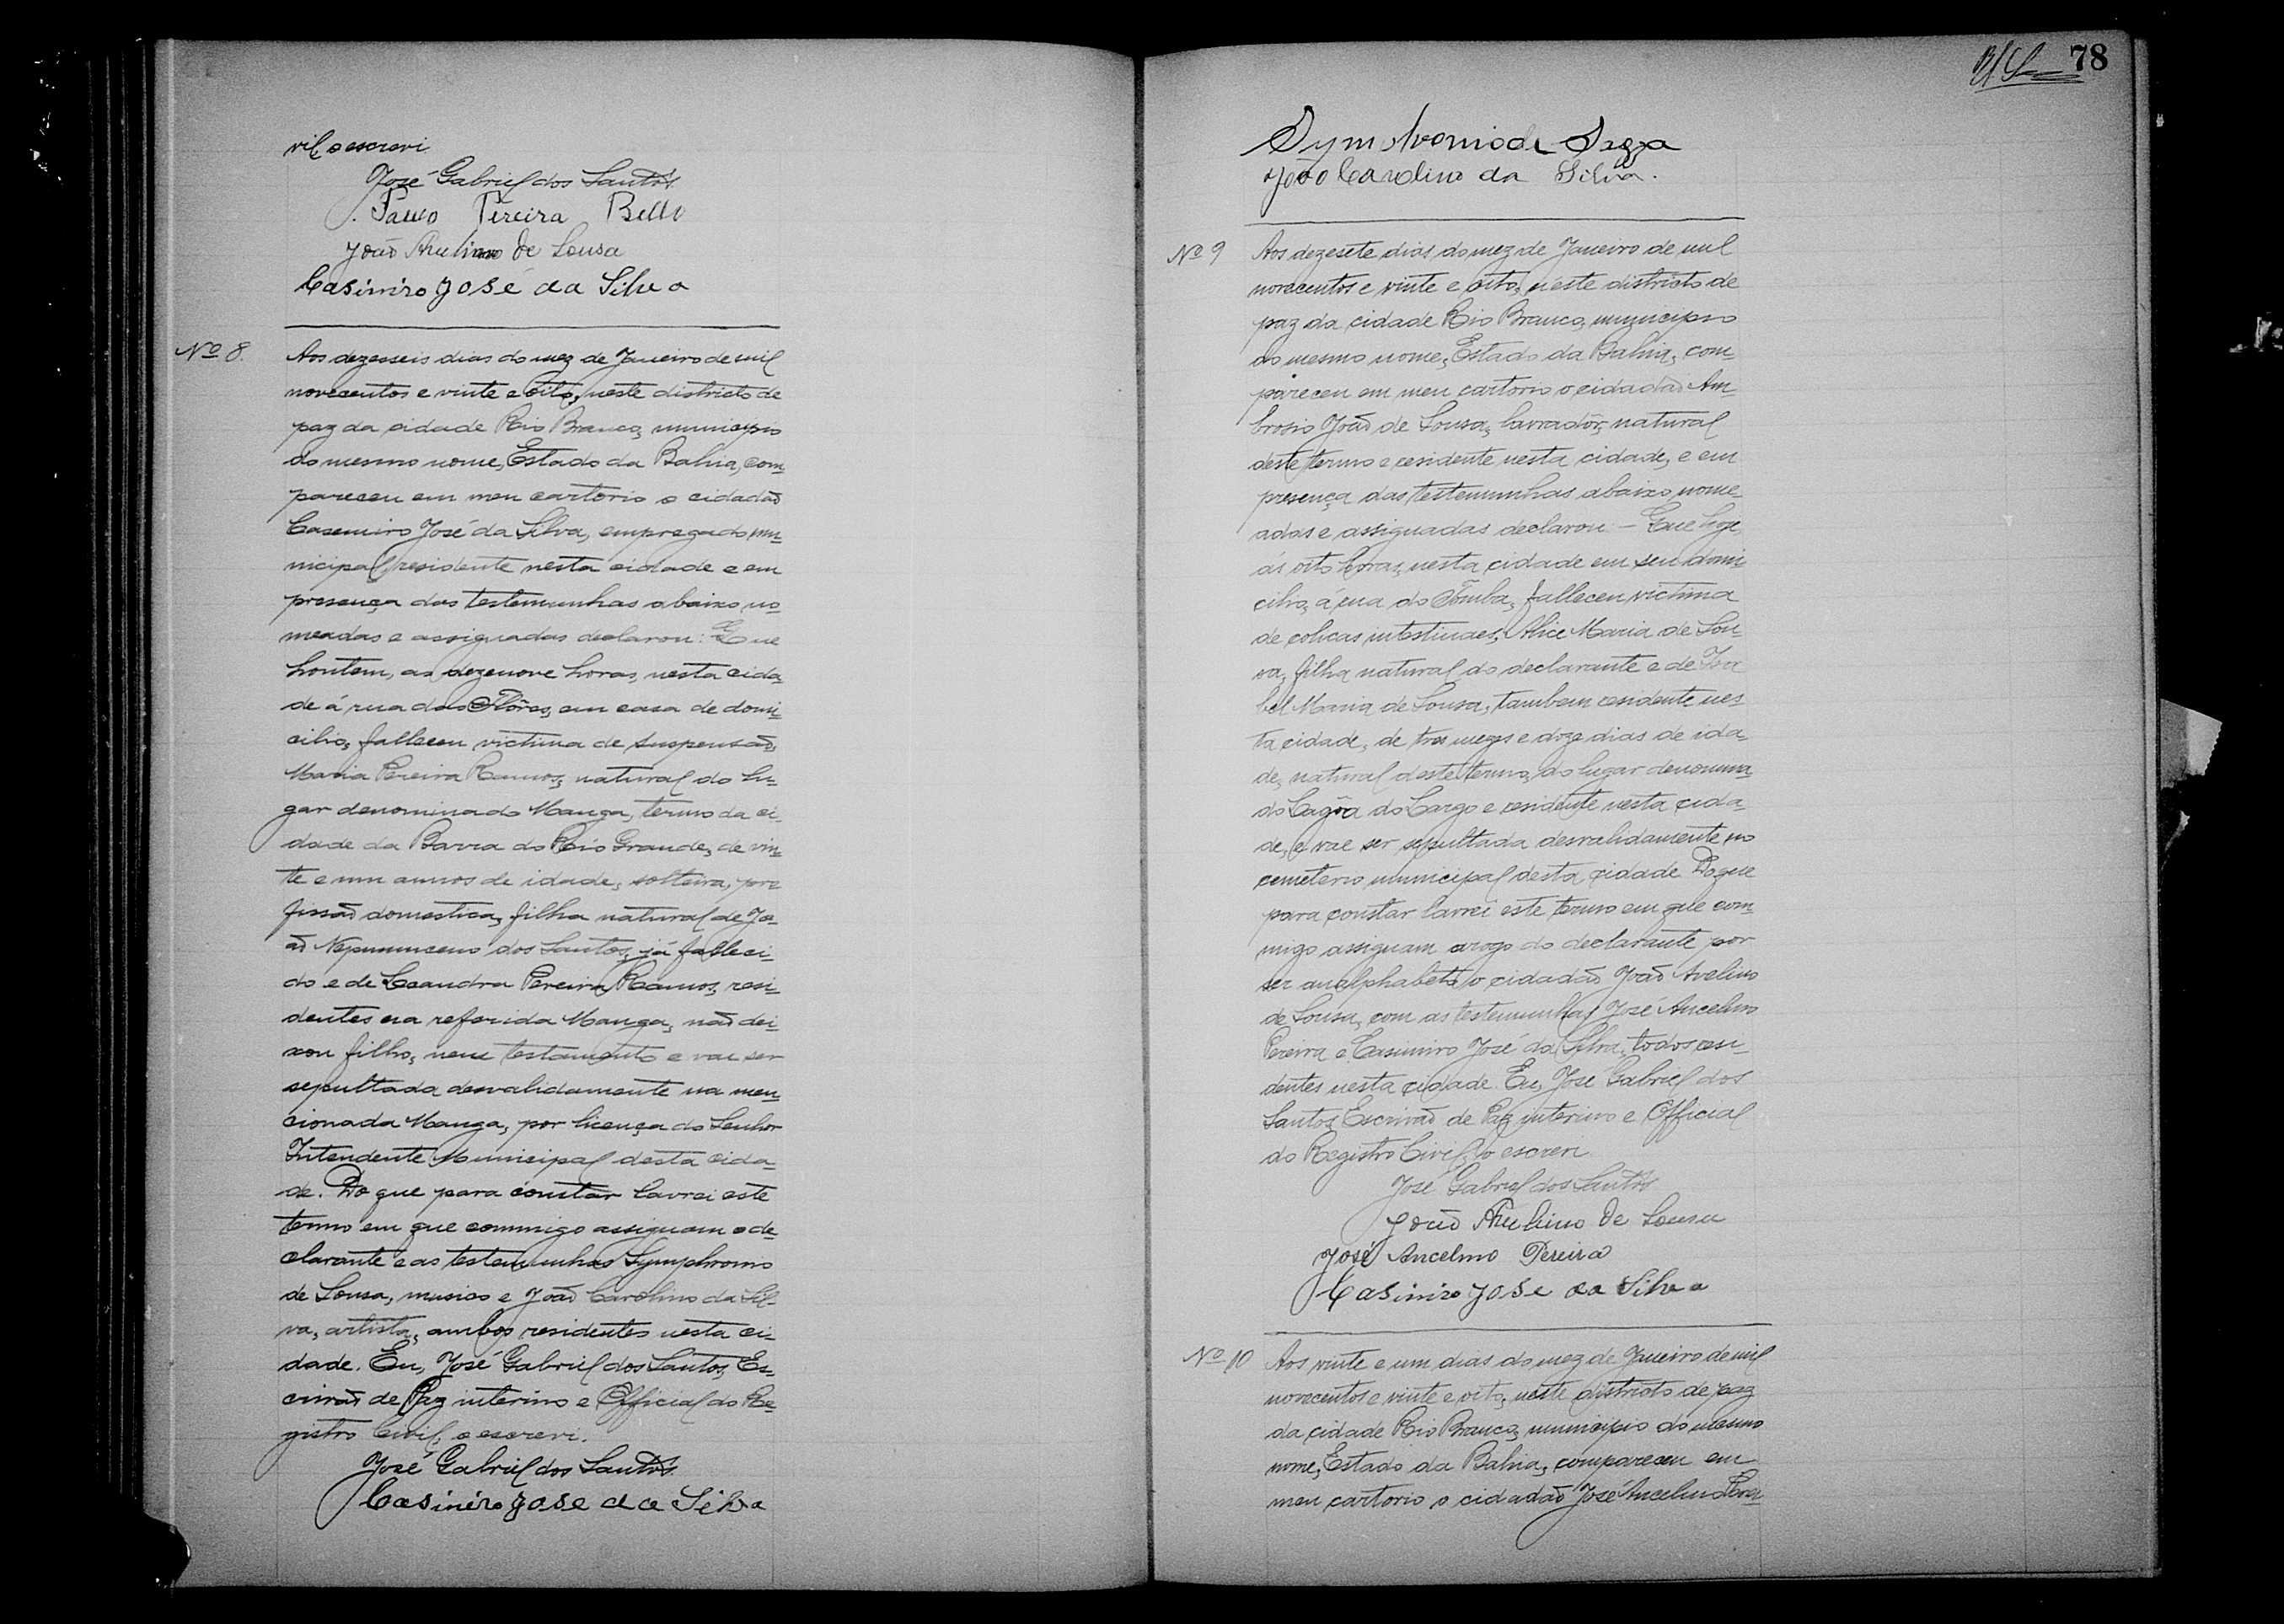 vil o escrevi.
José Gabriel dos Santos
Paulo Pereira Bello
João Avelino de Sousa
Casimiro José da Silva
Nº 8.
Aos dezesseis dias do mez de Janeiro de mil
novecentos e vinte e oito, neste districto de
paz da cidade Rio Branco, municipio
do mesmo nome, Estado da Bahia, com-
pareceu em meu cartorio o cidadão
Casemiro José da Silva, empregado mu-
nicipal, residente nesta cidade e em
presença das testemunhas abaixo no-
meadas e assignadas declarou: Que
hontem, as dezenove horas, nesta cida-
de á rua das Flôres, em casa de domi-
cilio, falleceu victima de suspensão,
Maria Pereira Ramos, natural do lu-
gar denominado Manga, termo da ci-
dade da Barra do Rio Grande, de vin-
te e um annos de idade, solteira, pro-
fissão domestica, filha natural de Jo-
ão Nepumuceno dos Santos, já falleci-
do e de Leandra Pereira Ramos, resi-
dentes na referida Manga, não dei-
xou filho, nem testamento e vae ser
sepultada desvalidamente na men-
cionada Manga, por licença do Senhor
Intendente Municipal desta cida-
de. Do que para constar lavrei este
termo em que commigo assignam o de-
clarante e as testemunhas Symphronio
de Sousa, musico e João Carolino da Sil-
va, artista, ambos residentes nesta ci-
dade. Eu, José Gabriel dos Santos, Es-
crivão de Paz interino e Official do Re-
gistro Civil, o escrevi.
José Gabriel dos Santos
Casimiro José da Silva
78
João Carolino da Silva.
Nº 9
Aos dezesete dias do mez de Janeiro de mil
novecentos e vinte e oito, néste districto de
paz da cidade Rio Branco, municipio
do mesmo nome, Estado da Bahia, com-
pareceu em meu cartorio o cidadão Am-
brosio João de Sousa, lavradôr, natural
deste termo e residente nesta cidade, e em
presença das testemunhas abaixo nome-
adas e assignadas declarou: - Que hoje
ás oito horas, nesta cidade em seu domi-
cilio, á rua do Tomba, falleceu victima
de colicas intestinaes, Alice Maria de Sou-
sa, filha natural do declarante e de Isa-
bel Maria de Sousa, tambem residente nes-
ta cidade, de tres mezes e doze dias de ida-
de, natural deste termo, do lugar denomina-
do Lagôa do Largo e residente nesta cida-
de, e vae ser sepultada desvalidamente no
cemeterio municipal desta cidade. Do que
para constar lavrei este termo em que com-
migo assignam arogo do declarante por
ser analphabeto o cidadão João Avelino
de Sousa, com as testemunhas José Ancelmo
Pereira e Casimiro José da Silva, todos resi-
dentes nesta cidade. Eu, José Gabriel dos
Santos, Escrivão de Paz interino e Official
do Registro Civil, o escrevi.
José Gabriel dos Santos
João Avelino de Sousa
José Ancelmo Pereira
Casimiro José da Silva
Nº 10
Aos vinte e um dias do mez de Janeiro de mil
novecentos e vinte e oito, neste districto de paz
da cidade Rio Branco, municipio do mesmo
nome, Estado da Bahia, compareceu em
meu cartorio o cidadão José Ancelmo Perei-